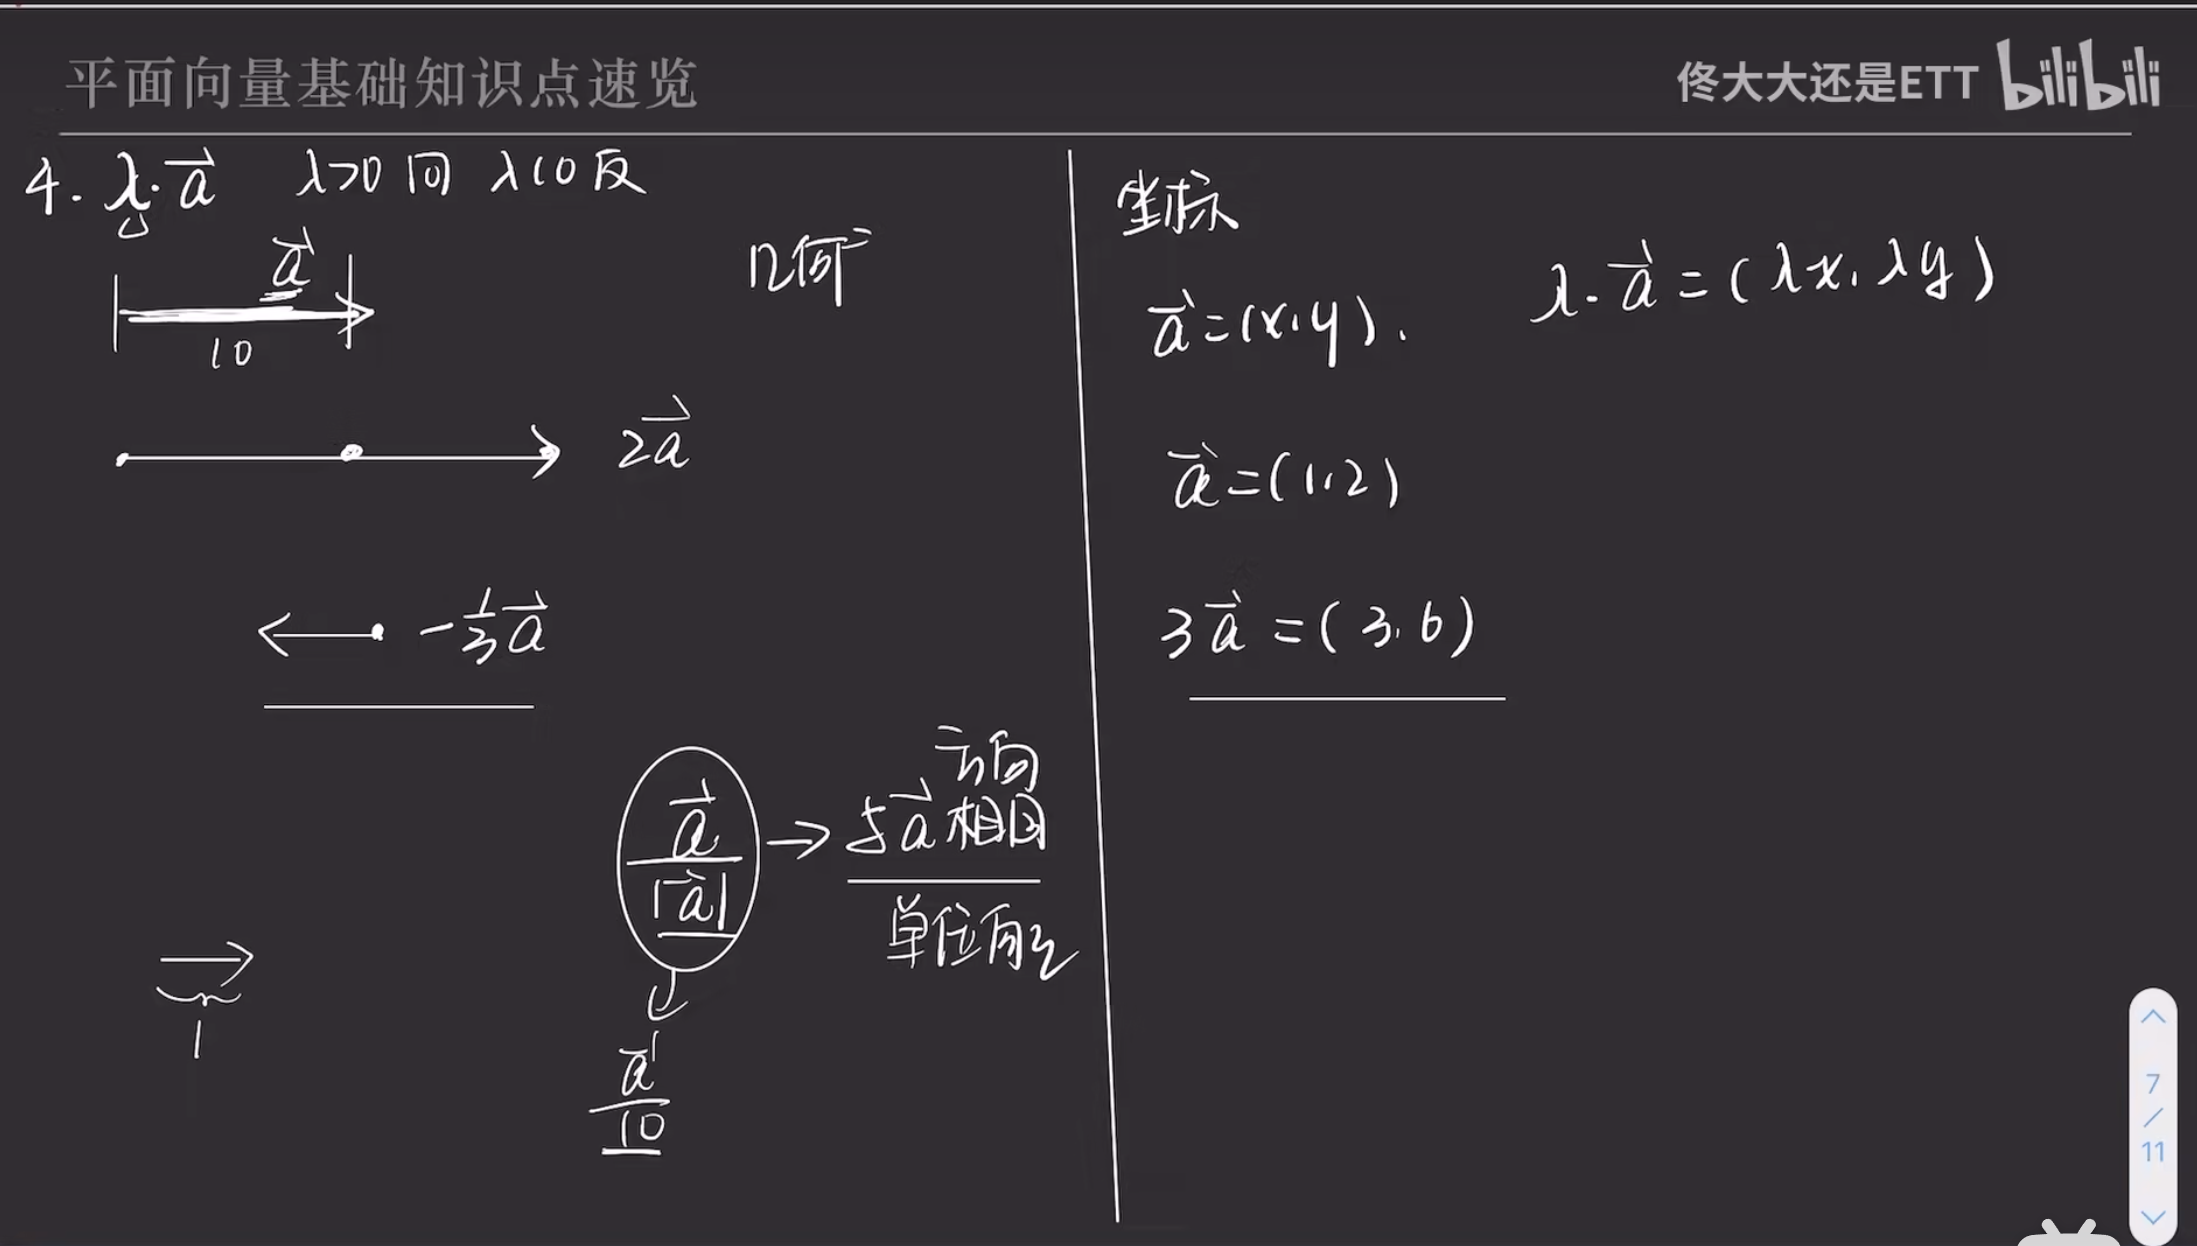 平面向量基础知识点速览
佟大大还是ETT bilibili
4. λ·a⃗ λ>0 同 λ<0 反
a⃗
10
几何
2a⃗
-1/3 a⃗
a⃗/|a⃗| → 与a⃗相同
方向
单位向量
1
a⃗/10
坐标
a⃗=(x,y). λ·a⃗=(λx,λy)
a⃗=(1,2)
3a⃗=(3,6)
7
/
11